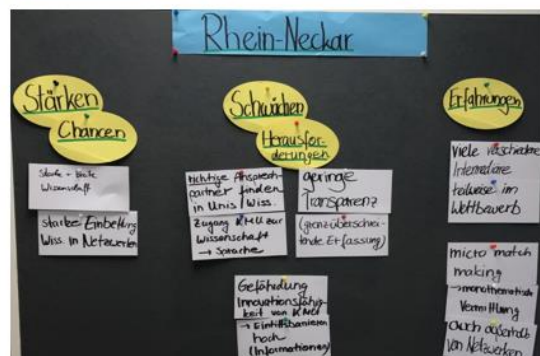 Rhein-Neckar
Stärken
Chancen
Starke + breite
Wissenschaft
starke Einbettung
Wiss. in Netzwerken
Schwächen
Herausfor-
derungen
richtige Ansprech-
partner finden
in Unis / Wiss.
Zugang KMU zur
Wissenschaft
→ Sprache
geringe
Transparenz
(grenzüberschrei-
tende Erfassung)
Gefährdung
Innovationsfähig-
keit von KMU
→ Eintrittsbarrieren
hoch
(Informationen)
Erfahrungen
viele verschiedene
Intermediäre
teilweise im
Wettbewerb
micro match
making
→ monothematische
Vermittlung
auch außerhalb
von Netzwerken